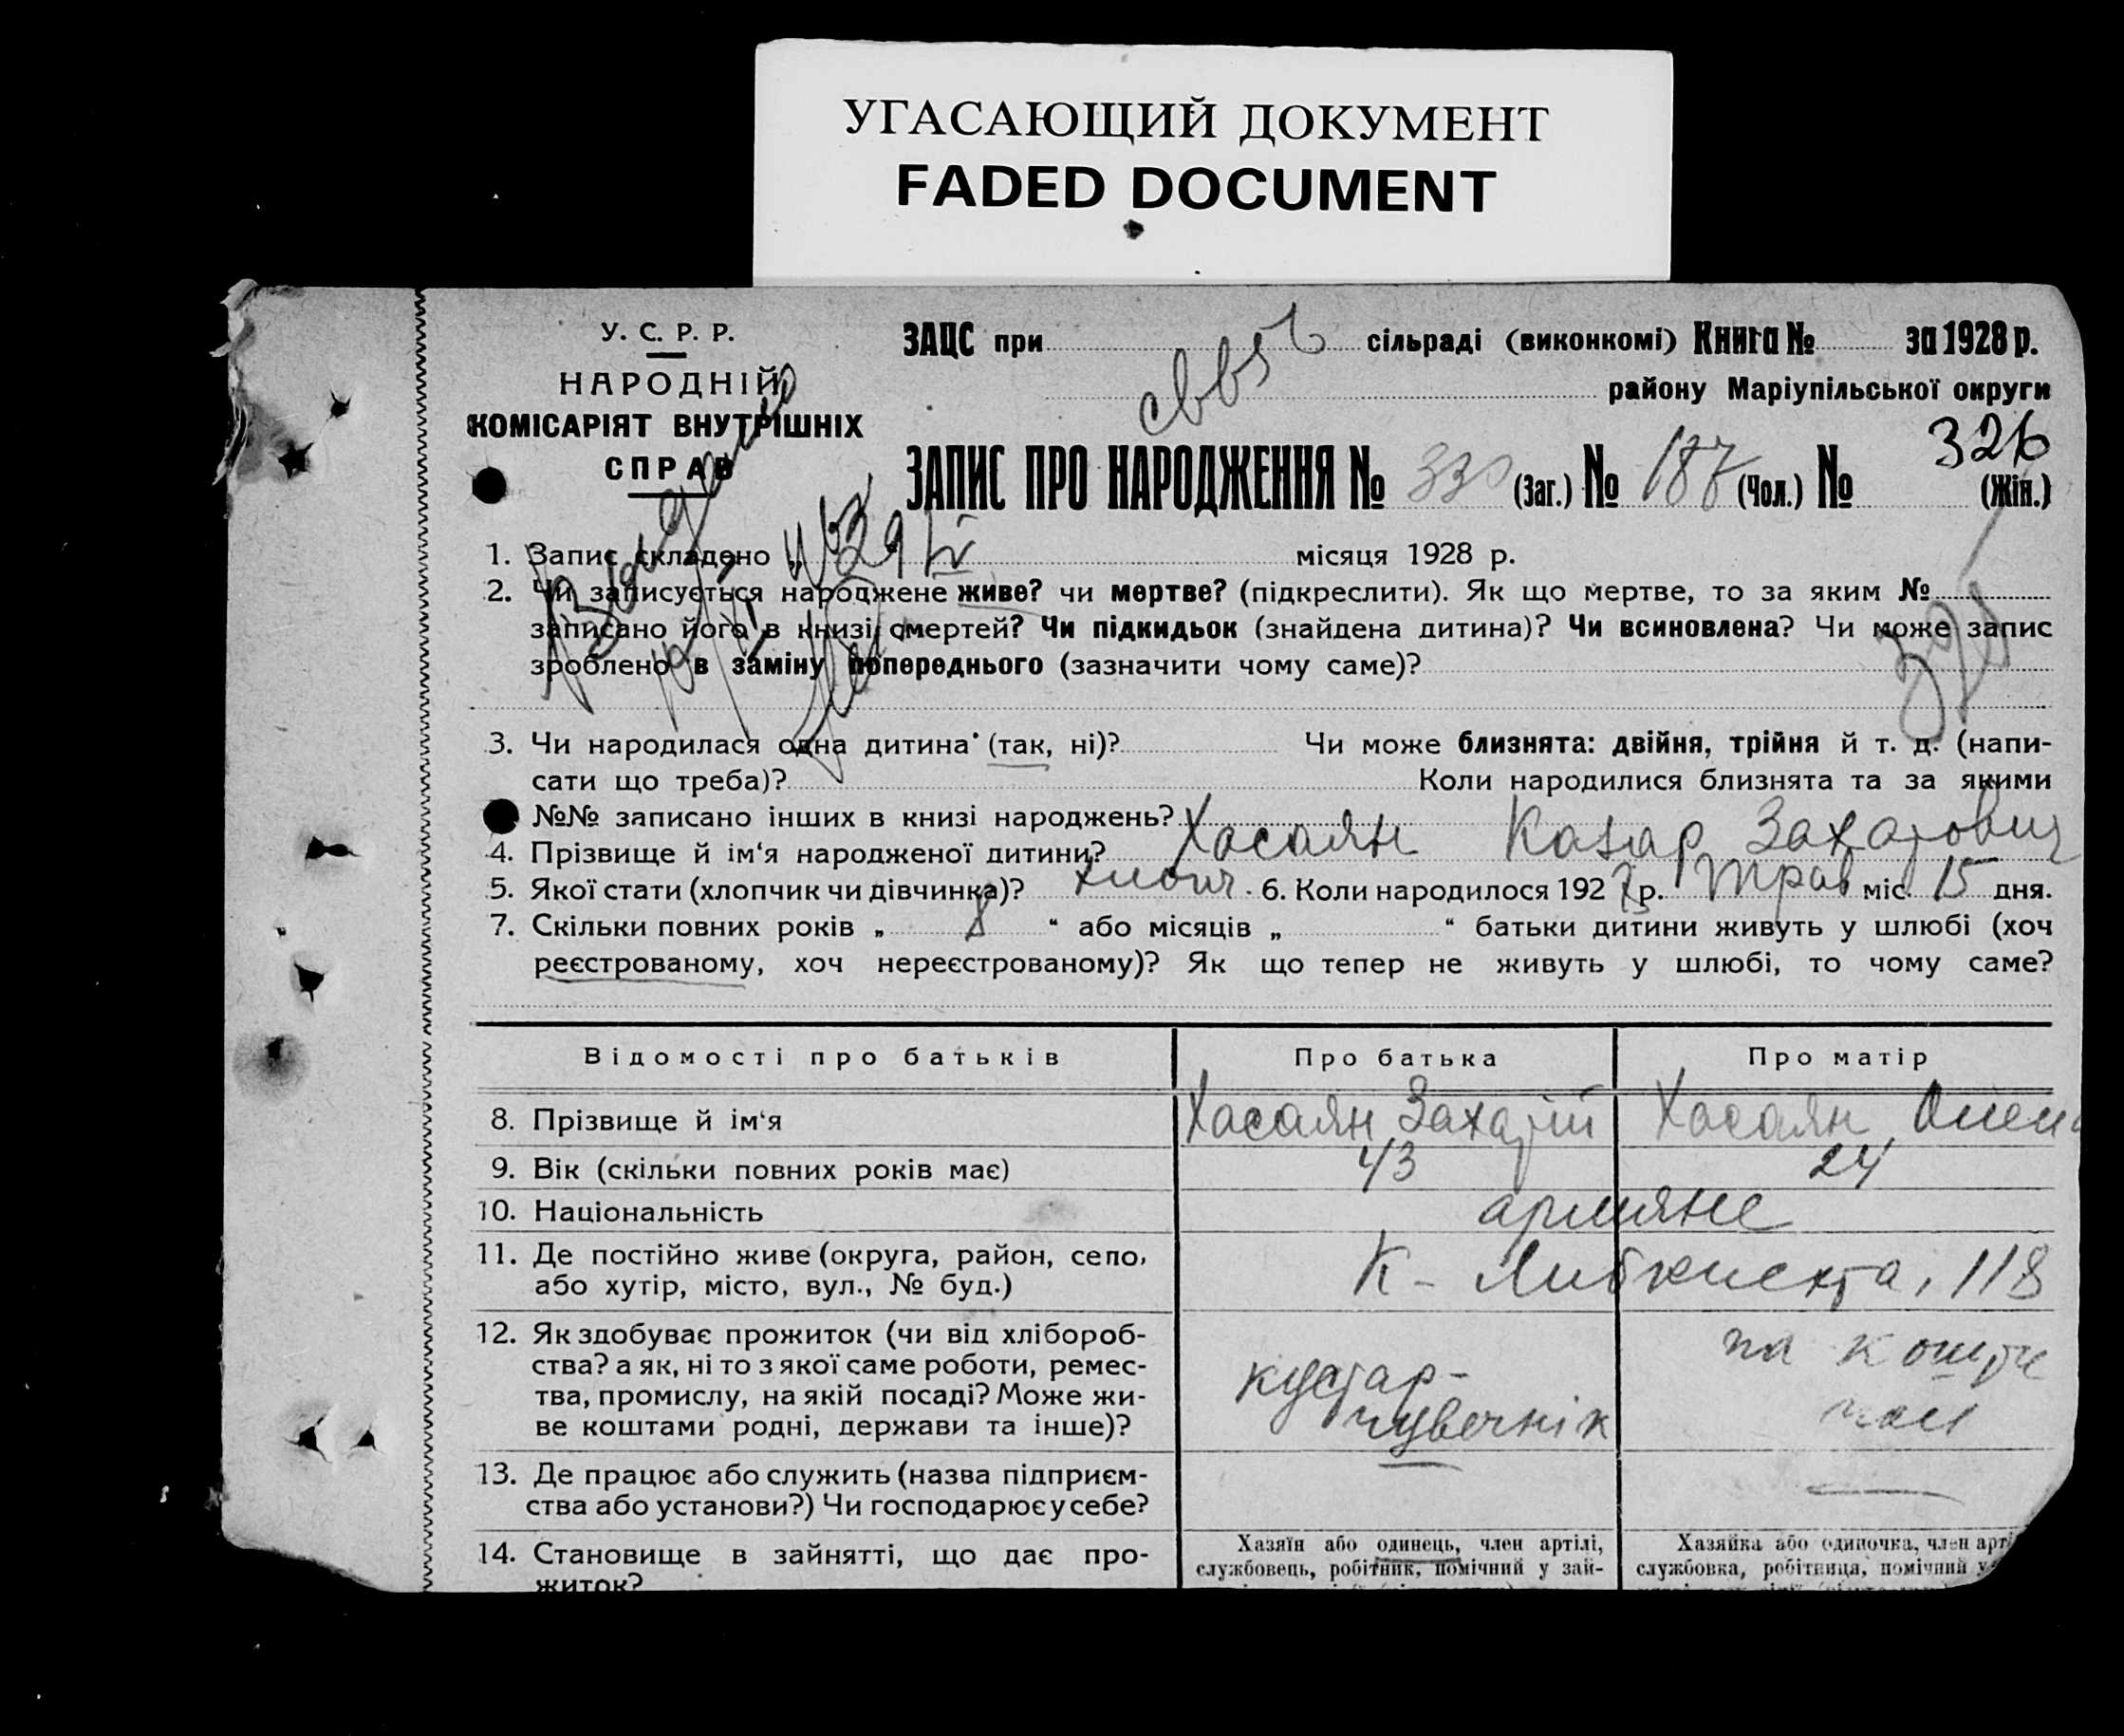 УГАСАЮЩИЙ ДОКУМЕНТ
FADED DOCUMENT
У. С. Р. Р.
НАРОДНІЙ
КОМІСАРІЯТ ВНУТРІШНІХ
СПРАВ
ЗАЦС при сільраді (виконкомі) Книга № за 1928 р.
району Маріупільської округи
326
ЗАПИС ПРО НАРОДЖЕННЯ № 330 (Заг.) № 187 (Чол.) № (Жін.)
1. Запис складено „ місяця 1928 р.
2. Чи записується народжене живе? чи мертве? (підкреслити). Як що мертве, то за яким №
записано його в книзі смертей? Чи підкидьок (знайдена дитина)? Чи всиновлена? Чи може запис
зроблено в заміну попереднього (зазначити чому саме)?
3. Чи народилася одна дитина (так, ні)? Чи може близнята: двійня, трійня й т. д. (напи-
сати що треба)? Коли народилися близнята та за якими
№№ записано інших в книзі народжень?
4. Прізвище й ім‘я народженої дитини? Хасаян Казар Захарович
5. Якої стати (хлопчик чи дівчинка)? хлопч. 6. Коли народилося 192 р. трав міс. 15 дня.
7. Скільки повних років „ 8 “ або місяців „ “ батьки дитини живуть у шлюбі (хоч
реєстрованому, хоч нереєстрованому)? Як що тепер не живуть у шлюбі, то чому саме?
Відомості про батьків Про батька Про матір
8. Прізвище й ім‘я Хасаян Захарій Хасаян Олена
9. Вік (скільки повних років має) 43 24
10. Національність армяне
11. Де постійно живе (округа, район, село,
або хутір, місто, вул., № буд.) К-Либкнехта, 118
12. Як здобуває прожиток (чи від хлібороб-
ства? а як, ні то з якої саме роботи, ремес-
тва, промислу, на якій посаді? Може жи-
ве коштами родні, держави та інше)?
кустар-
на кошти
13. Де працює або служить (назва підприєм-
ства або установи?) Чи господарює у себе?
14. Становище в зайнятті, що дає про-
житок?
Хазяїн або одинець, член артілі,
службовець, робітник, помічний у зай-
Хазяйка або одиночка, член арт
службовка, робітниця, помічний у